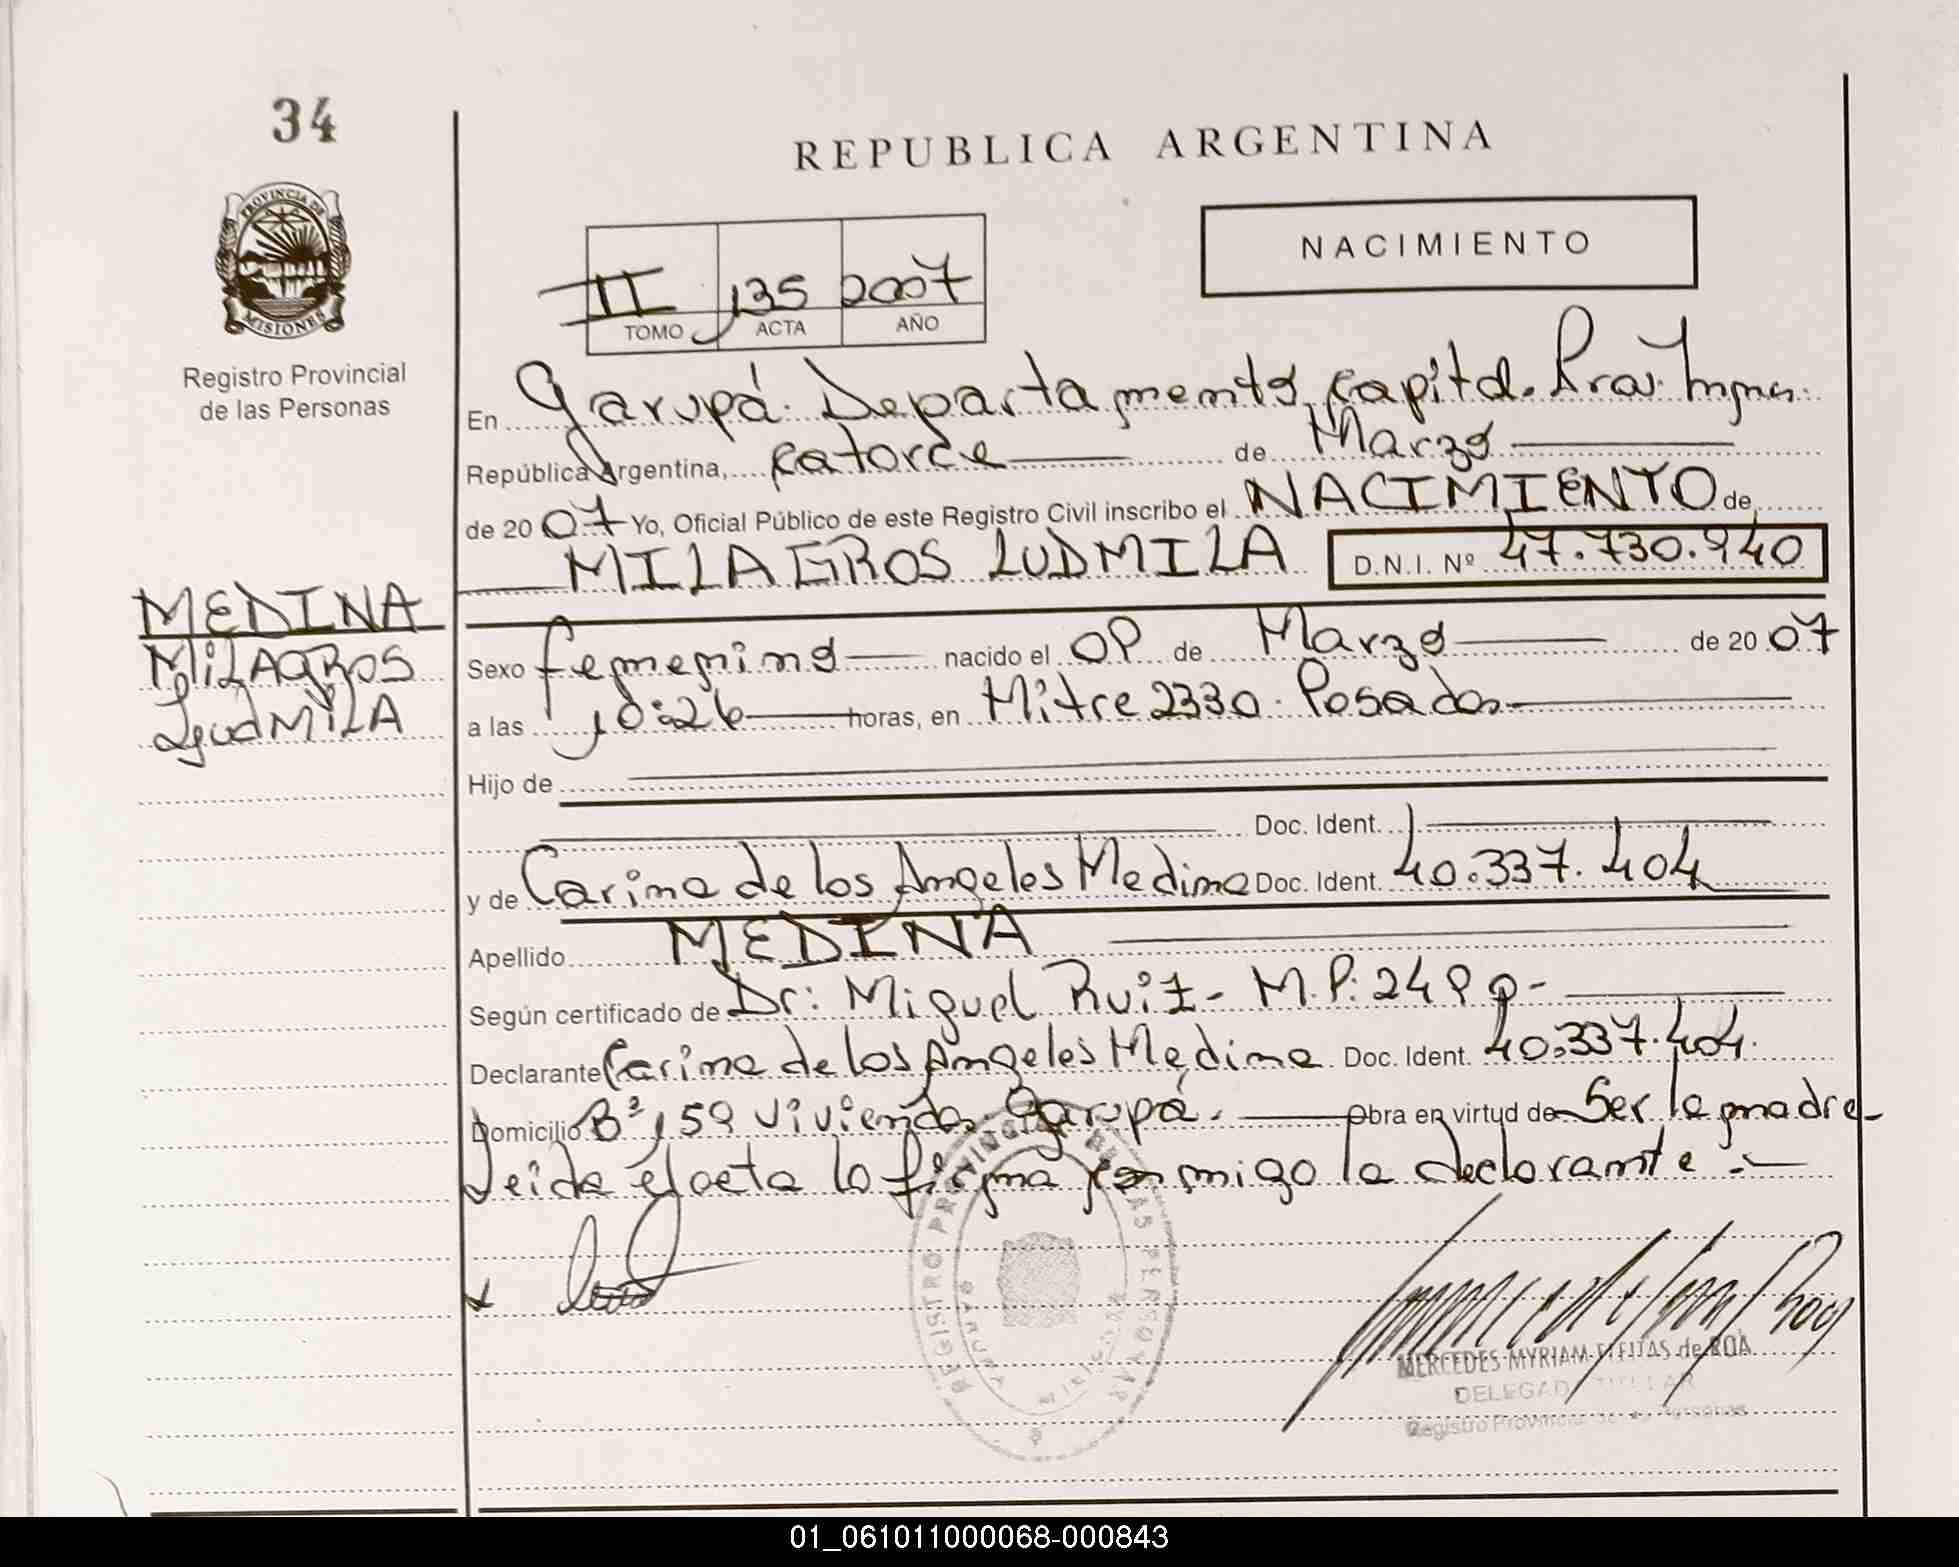 34
REPUBLICA ARGENTINA
PROVINCIA DE
MISIONES
Registro Provincial
de las Personas
NACIMIENTO
II 135 2007
TOMO ACTA AÑO
En Garupá. Departamento Capital.
República Argentina, catorce de Marzo
de 2007 Yo, Oficial Público de este Registro Civil inscribo el NACIMIENTO de
MILAGROS LUDMILA D.N.I. Nº 47.730.940
MEDINA
MILAGROS
LudMILA
Sexo femenino nacido el de Marzo de 2007
a las 10:26 horas, en Mitre 2330. Posadas
Hijo de
Doc. Ident.
y de Carina de los Angeles Medina Doc. Ident. 40.337.404
Apellido MEDINA
Según certificado de Dr: Miguel Ruiz - M.P:
Declarante Carina de los Angeles Medina Doc. Ident. 40.337.404
Domicilio Bº Viviendas Garupá. Obra en virtud de Ser la madre
Leida el acta la firma conmigo la declarante
REGISTRO PROVINCIAL DE LAS PERSONAS
GARUPA
MISIONES
MERCEDES MYRIAM FREITAS de ROA
DELEGADA TITULAR
Registro Provincial de las Personas
01_061011000068-000843